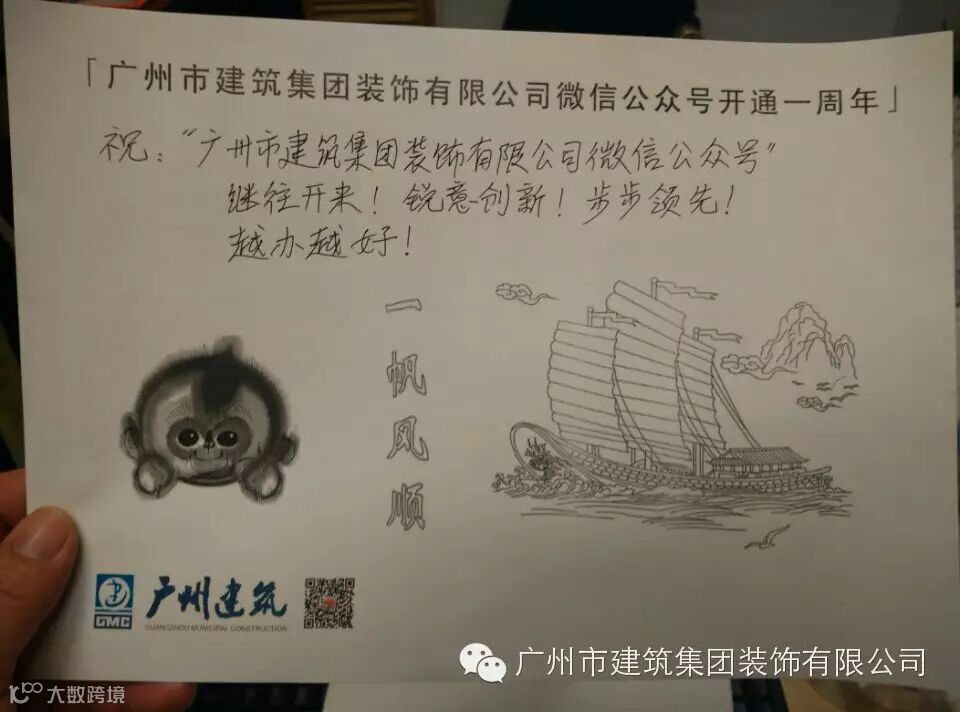 「广州市建筑集团装饰有限公司微信公众号开通一周年」
祝："广州市建筑集团装饰有限公司微信公众号"
继往开来！锐意创新！步步领先！
越办越好！
一帆风顺
GMC
广州建筑
GUANGZHOU MUNICIPAL CONSTRUCTION
广州市建筑集团装饰有限公司
大数跨境